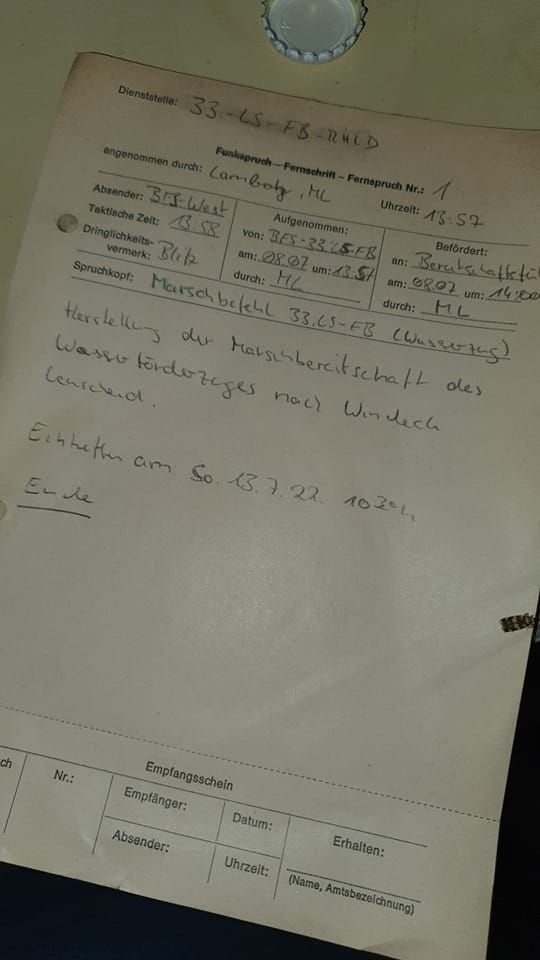 Dienststelle: 33.-LS-FB-RHLD
Funkspruch – Fernschrift – Fernspruch Nr.: 1
angenommen durch: , ML Uhrzeit: 13:57
Absender: BFS-West
Taktische Zeit: 13.58
Dringlichkeits-
vermerk: Blitz
Aufgenommen:
von: BFS-33.LS-FB
am: 0807 um: 13.57
durch: ML
Befördert:
an:
am: 0807 um: 14:00
durch: ML
Spruchkopf: Marschbefehl 33.LS-FB (Wasserzug)
Herstellung der Marschbereitschaft des
Wasserförderzuges nach Windeck
Leuscheid.
Eintreffen am So. 13.7.22. 10 30h
Ende
ch
Empfangsschein
Nr.:
Empfänger:
Datum:
Erhalten:
Absender:
Uhrzeit:
(Name, Amtsbezeichnung)